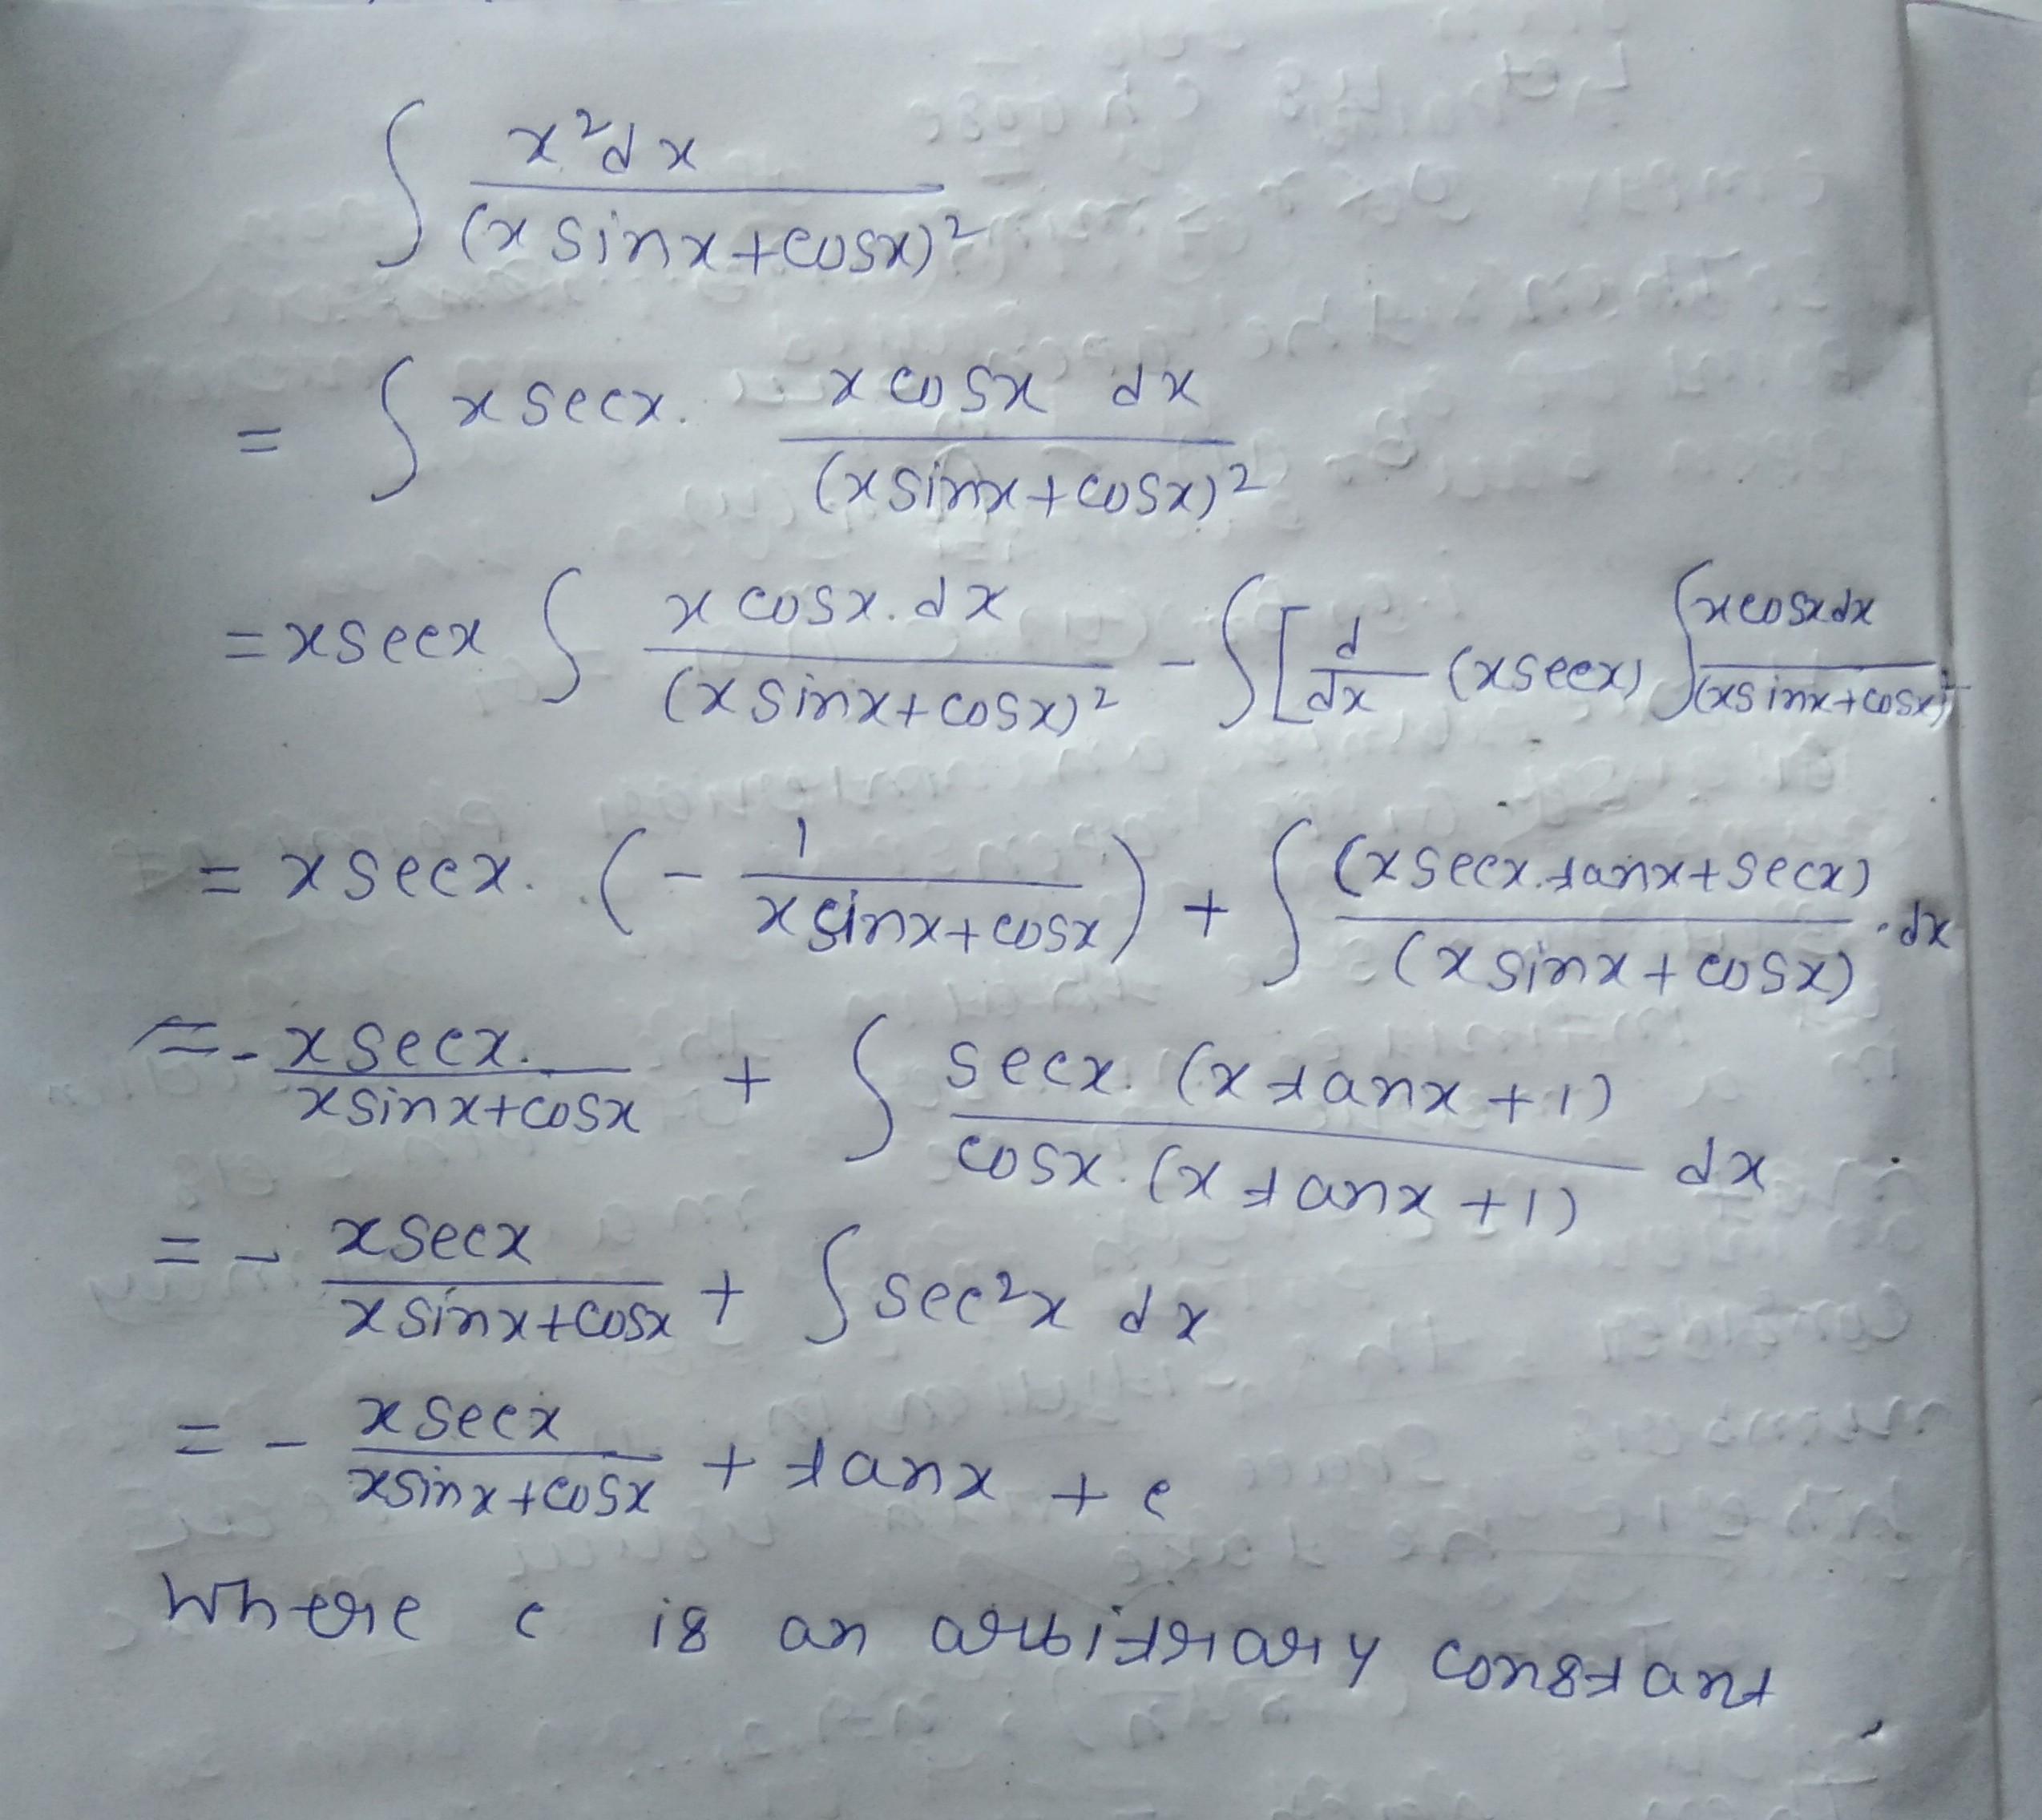 ∫ x²dx / (x sinx+cosx)²
= ∫ x secx. x cosx dx / (x sinx+cosx)²
= x secx ∫ x cosx.dx / (x sinx+cosx)² - ∫[ d/dx (x secx) ∫ x cosx dx / (x sinx+cosx)²
= x secx. (- 1 / x sinx+cosx) + ∫ (x secx.tanx+secx) / (x sinx+cosx) .dx
= - x secx. / x sinx+cosx + ∫ secx. (x tanx+1) / cosx. (x tanx+1) dx
= - x secx / x sinx+cosx + ∫ sec²x dx
= - x secx / x sinx+cosx + tanx + c
Where c is an arbitrary constant